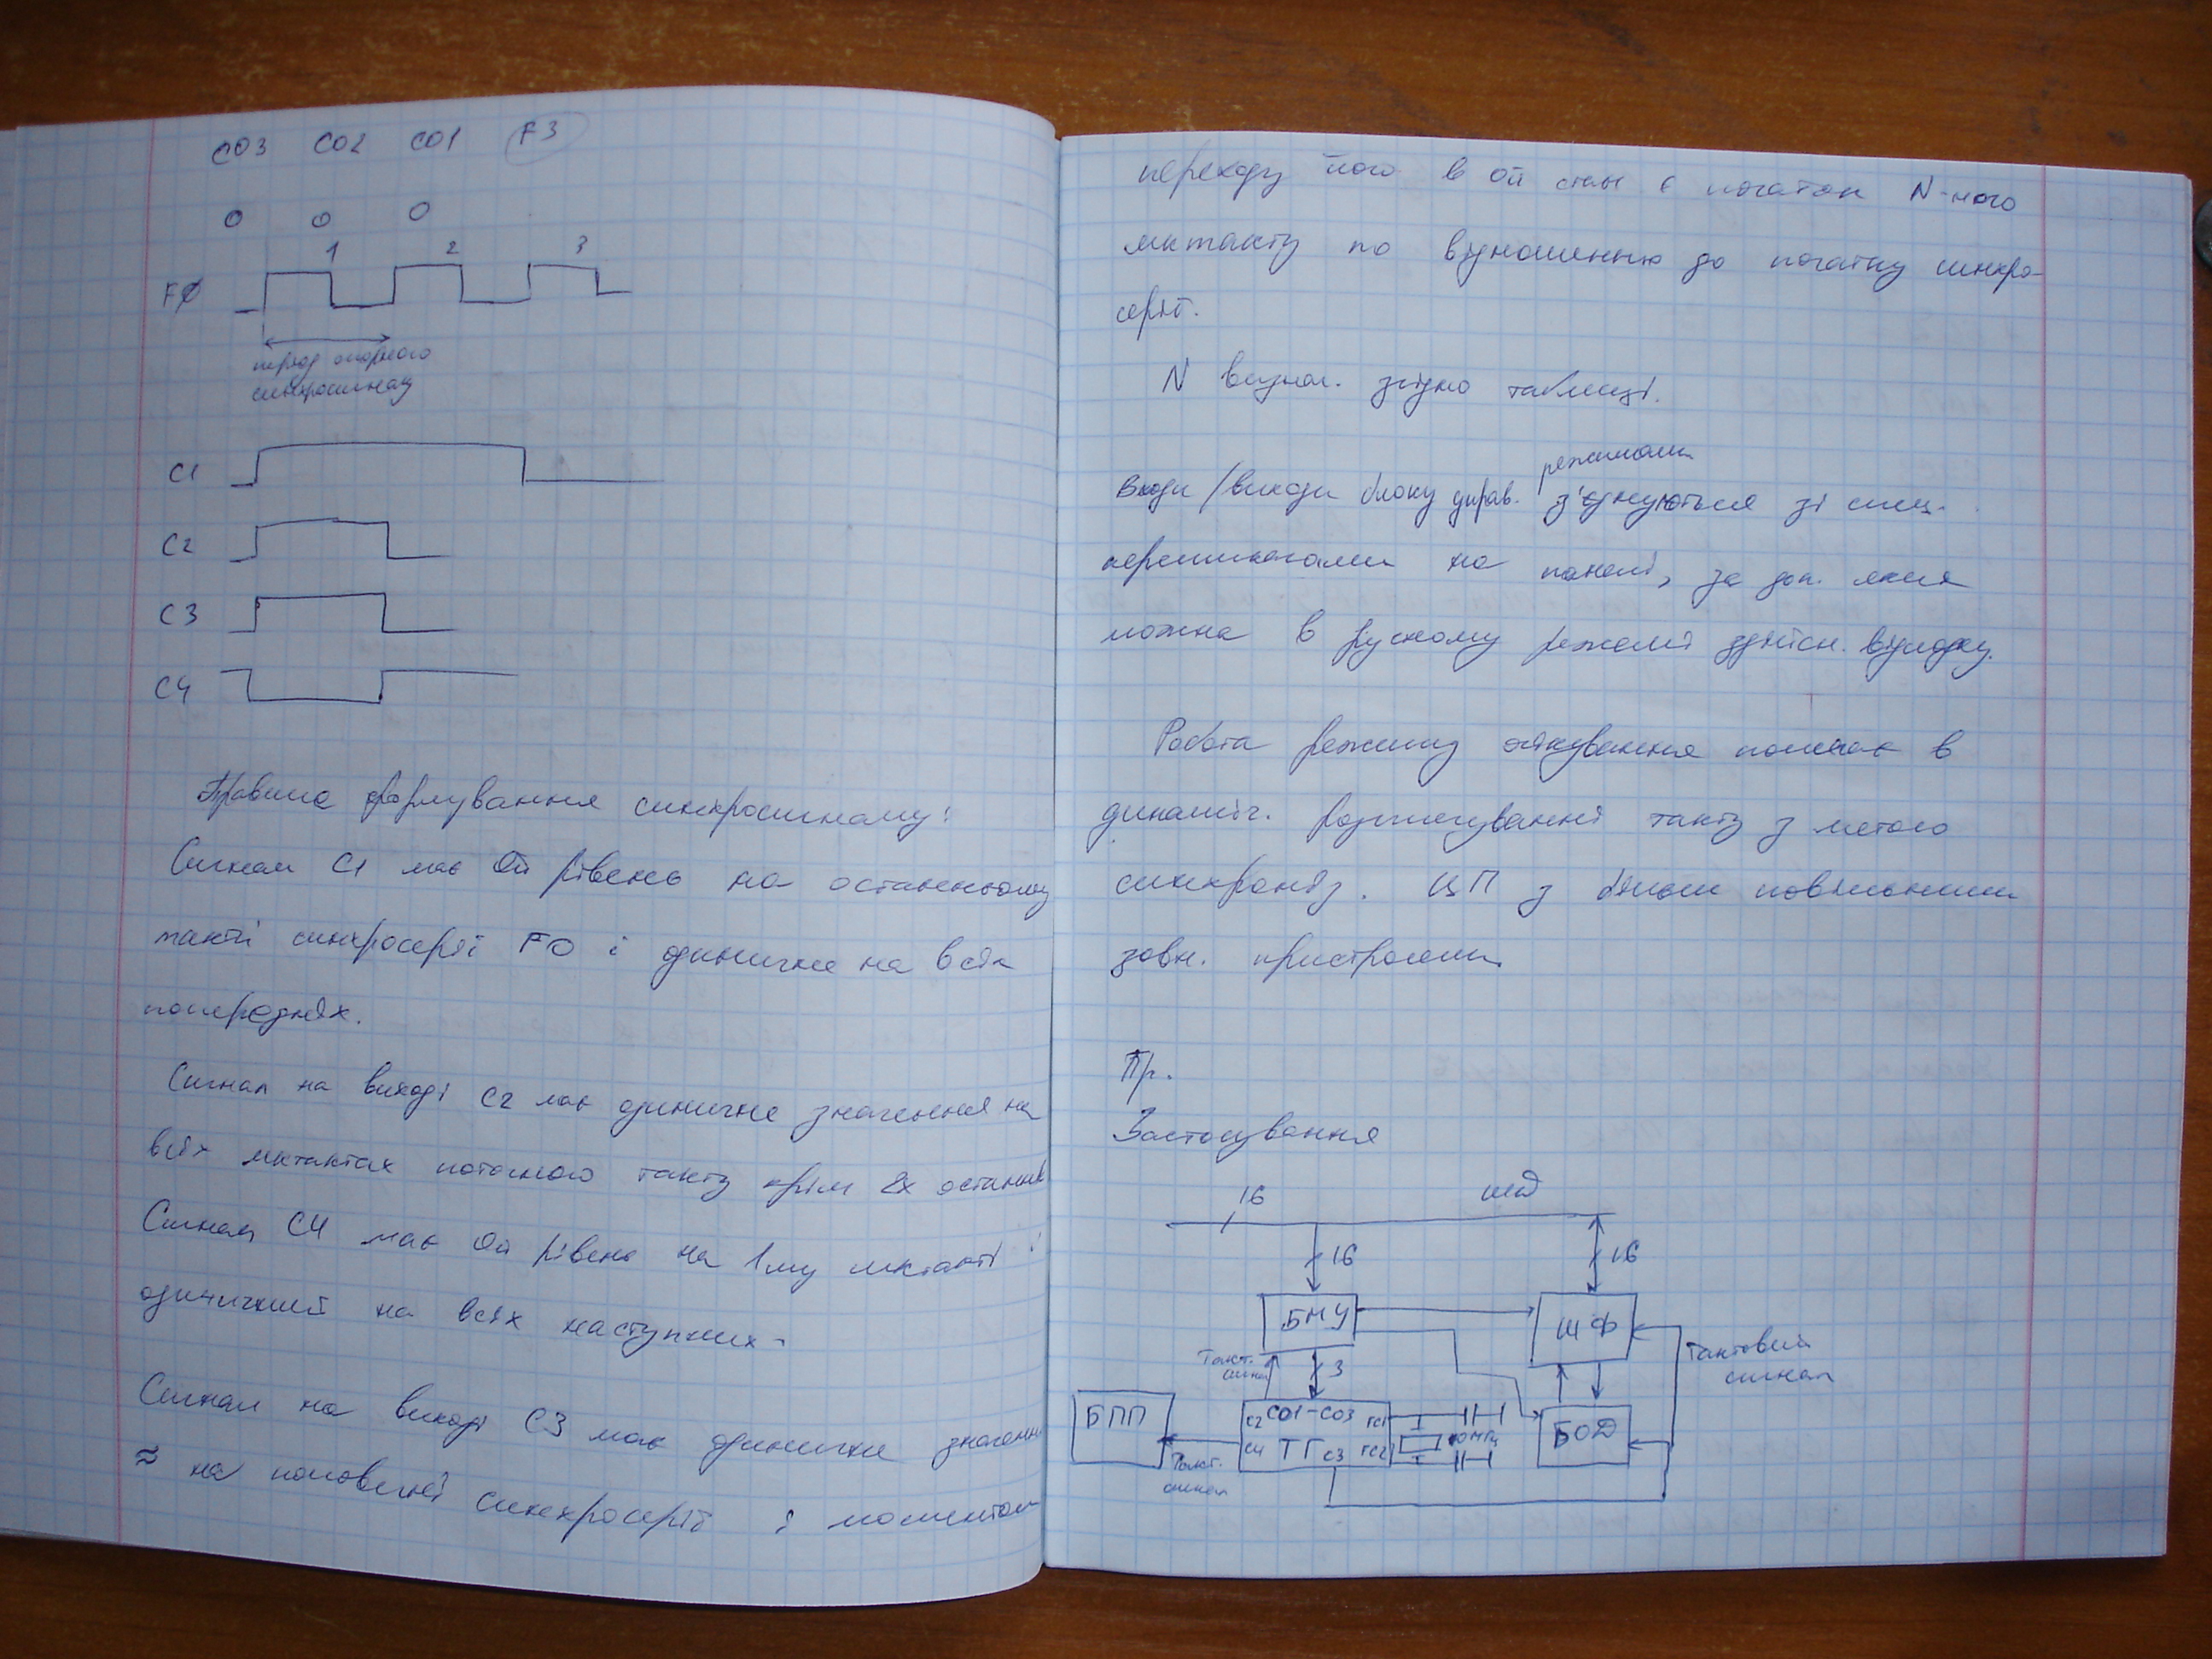 СО3 СО2 СО1 F3
0 0 0
1 2 3
FØ
період опорного
синхросигналу
С1
С2
С3
С4
Правила формування синхросигналу:
Сигнал С1 має 0й рівень на останньому
такті синхросерії F0 і одиничне на всіх
попередніх.
Сигнал на виході С2 має одиничне значення на
всіх мктактах поточного такту крім 2х останніх
Сигнал С4 має 0й рівень на 1му мктакті і
одиничний на всіх наступних.
Сигнал на виході С3 має одиничне значення
≈ на половині синхросерії і моментом
переходу його в 0й стан є початок N-ного
мктакту по відношенню до початку синхро-
серії.
N визнач. згідно таблиці.
режимами
Входи/виходи блоку управ. з'єднуються зі спец.
перемикачами на панелі, за доп. яких
можна в ручному режимі здійсн. відладку.
Робота режиму очікування полягає в
динаміч. розтягуванні такту з метою
синхроніз. ЦП з більш повільними
зовн. пристроями.
Пр.
Застосування
16 шд
16 16
БМУ ШФ
Такт.
сигнал
3
Тактовий
сигнал
БПП
С2 СО1-СО3 ГС1
С4 ТГ С3 ГС2
МГц
БОД
Такт.
сигнал